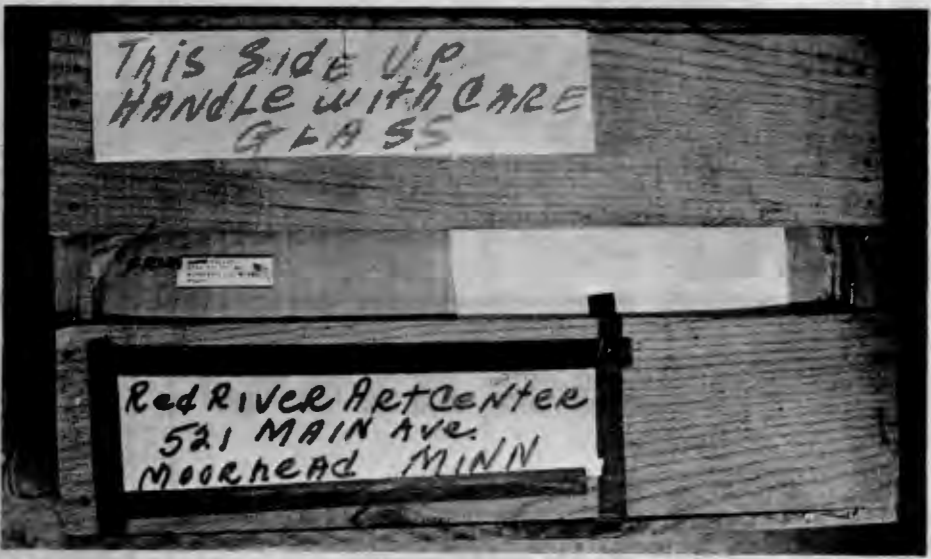 This Side UP
HANDLE with CARE
GLASS
FROM
Red RIVER ARt CeNteR
521 MAIN Ave.
MOORheAd MINN